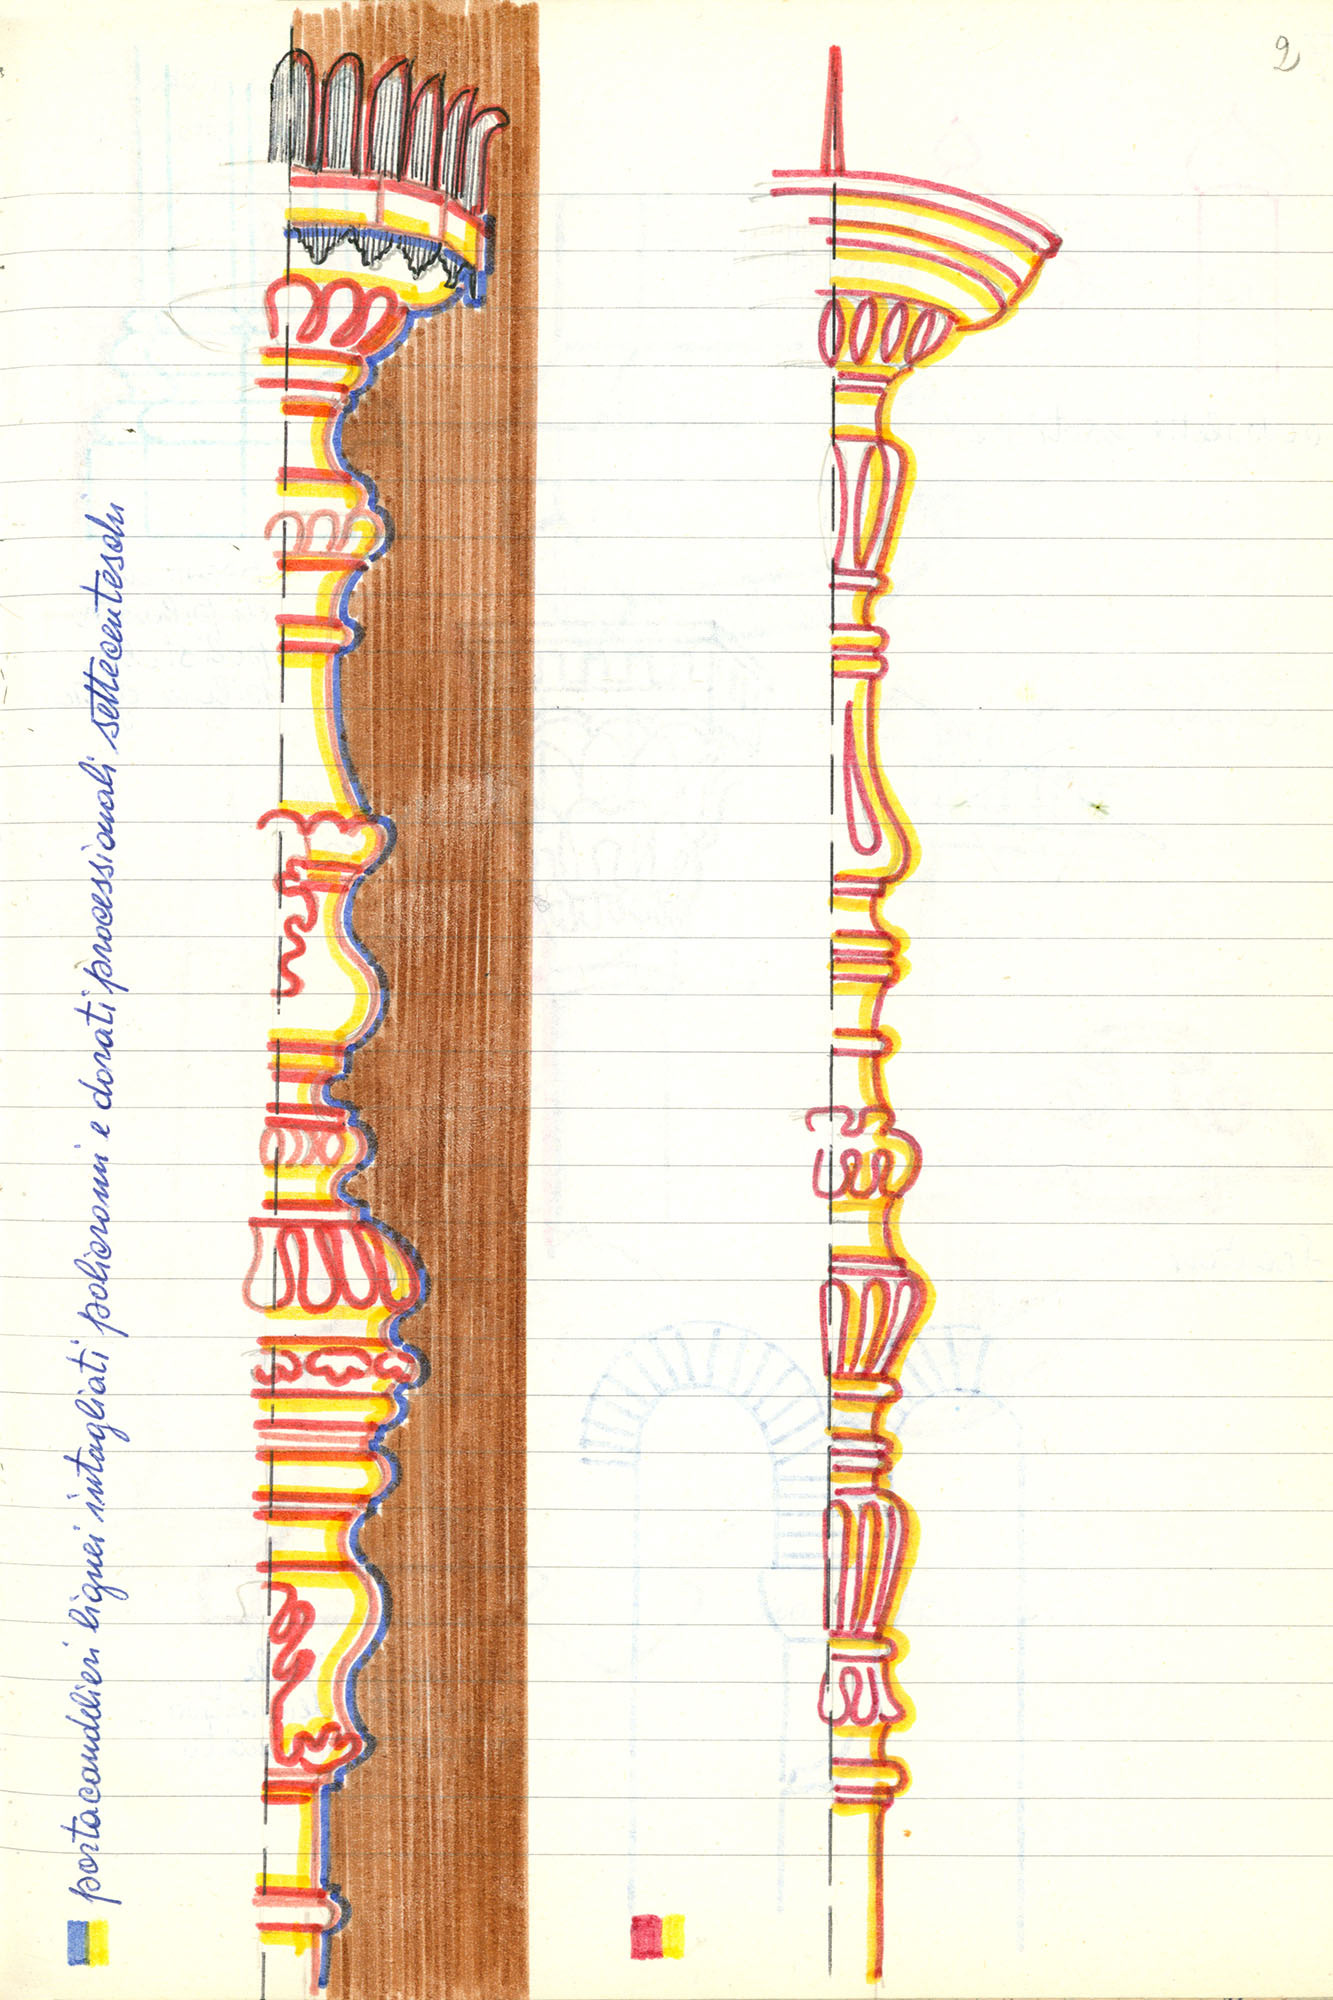 2
portacandelieri lignei intagliati policromi e dorati processionali settecenteschi